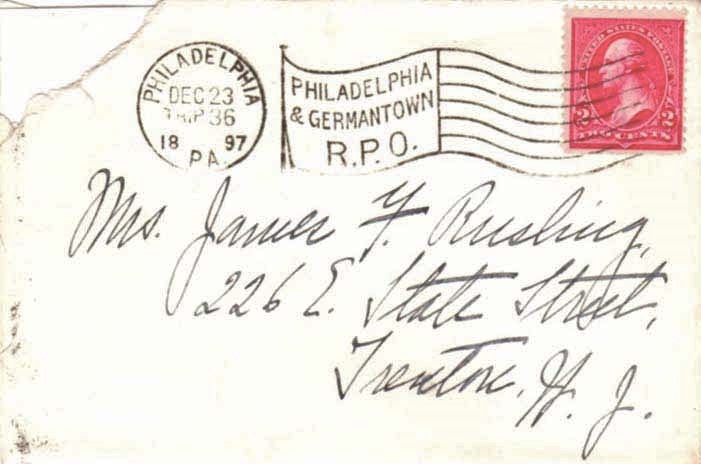 PHILADELPHIA
DEC 23
TRIP 36
18 97
PA.
PHILADELPHIA
& GERMANTOWN
R.P.O.
UNITED STATES POSTAGE
2 2
TWO CENTS
Mrs. James F. Rusling,
226 E. State Street,
Trenton, N. J.